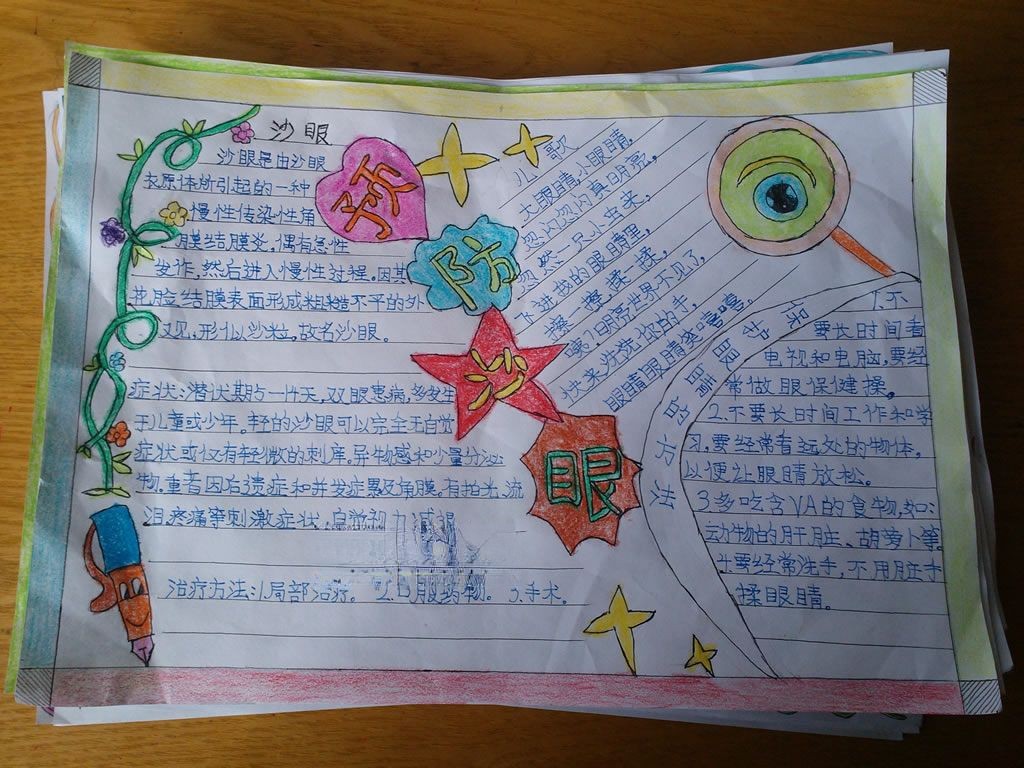 沙眼
沙眼是由沙眼
衣原体所引起的一种
慢性传染性角
膜结膜炎，偶有急性
发作，然后进入慢性过程。因其
在脸结膜表面形成粗糙不平的外
观，形似沙粒，故名沙眼。
症状：潜伏期5一14天，双眼患病，多发生
于儿童或少年。轻的沙眼可以完全无自觉
症状或仅有轻微的刺痒。异物感和少量分泌
物，重者因后遗症和并发症累及角膜。有怕光、流
泪、疼痛等刺激症状，自觉视力减退
治疗方法：1.局部治疗。2.口服药物。3.手术。
预
防
沙
眼
儿歌
大眼睛，小眼睛，
忽闪忽闪真明亮。
忽然一只小虫来，
飞进我的眼睛里，
擦一擦，揉一揉，
咦？明亮世界不见了，
快来洗洗你的手，
眼睛眼睛
保护眼睛的方法
1.不
要长时间看
电视和电脑，要经
常做眼保健操。
2.不要长时间工作和学
习，要经常看远处的物体，
以便让眼睛放松。
3.多吃含VA的食物，如：
动物的肝脏、胡萝卜等。
4.要经常洗手，不用脏手
揉眼睛。